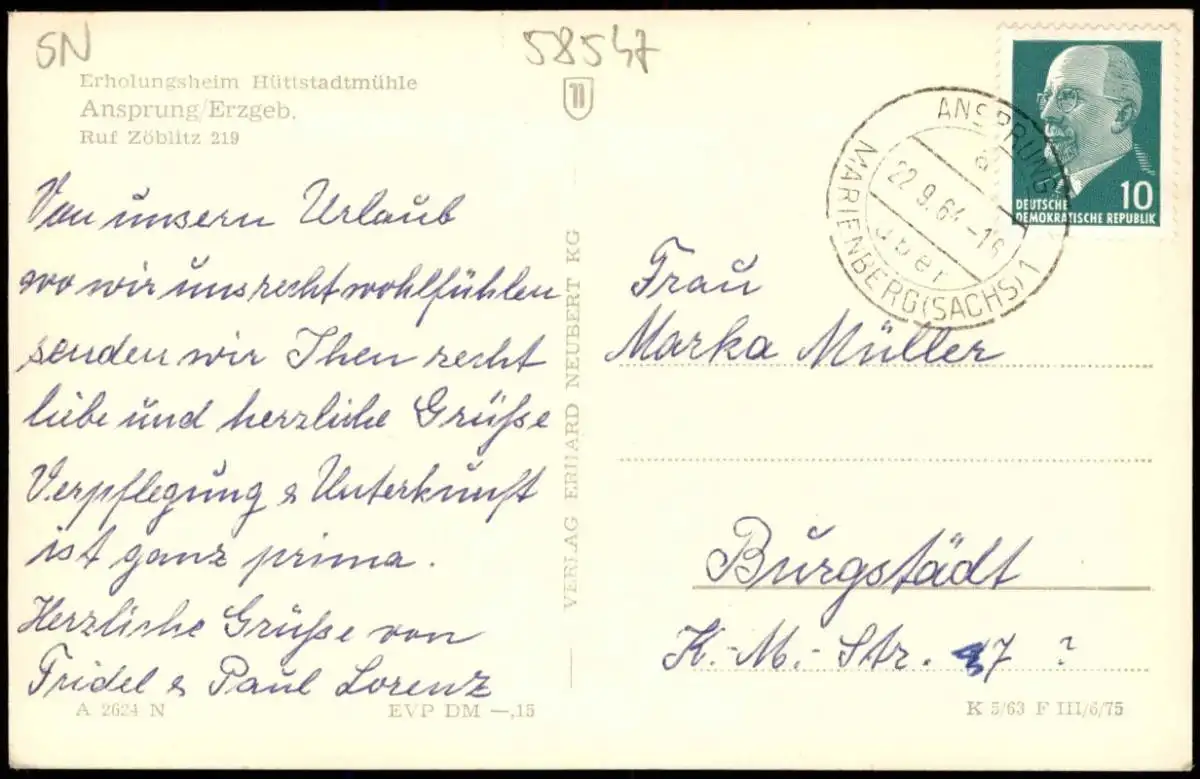 SN
58547
Erholungsheim Hüttstadtmühle
Ansprung/Erzgeb.
Ruf Zöblitz 219
Von unsern Urlaub
wo wir uns recht wohlfühlen
senden wir Ihen recht
liebe und herzliche Grüße
Verpflegung & Unterkunft
ist ganz prima.
Herzliche Grüße von
Fridel & Paul Lorenz
A 2624 N
EVP DM —,15
VERLAG ERHARD NEUBERT KG
ANSPRUNG
a
22.9.64-16
über
MARIENBERG (SACHS) 1
10
DEUTSCHE
DEMOKRATISCHE REPUBLIK
Frau
Marka Müller
Burgstädt
K.-M.-Str. 37 ?
K 5/63 F III/6/75